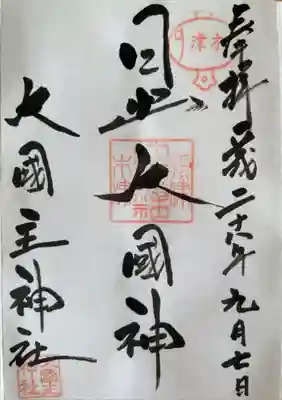 奉拝 平成二十六年九月七日
木津
日出大國神
大國主神社